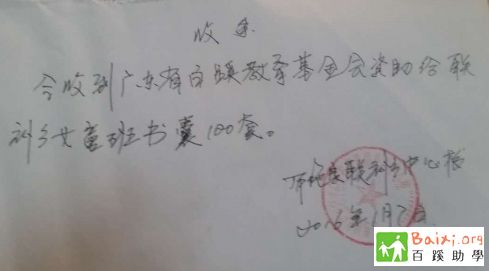 收条
今收到广东省百蹊教育基金会资助给联
利乡女童班书囊100套。
联利乡中心校
2016年1月7日
Baixi.org
百蹊助學